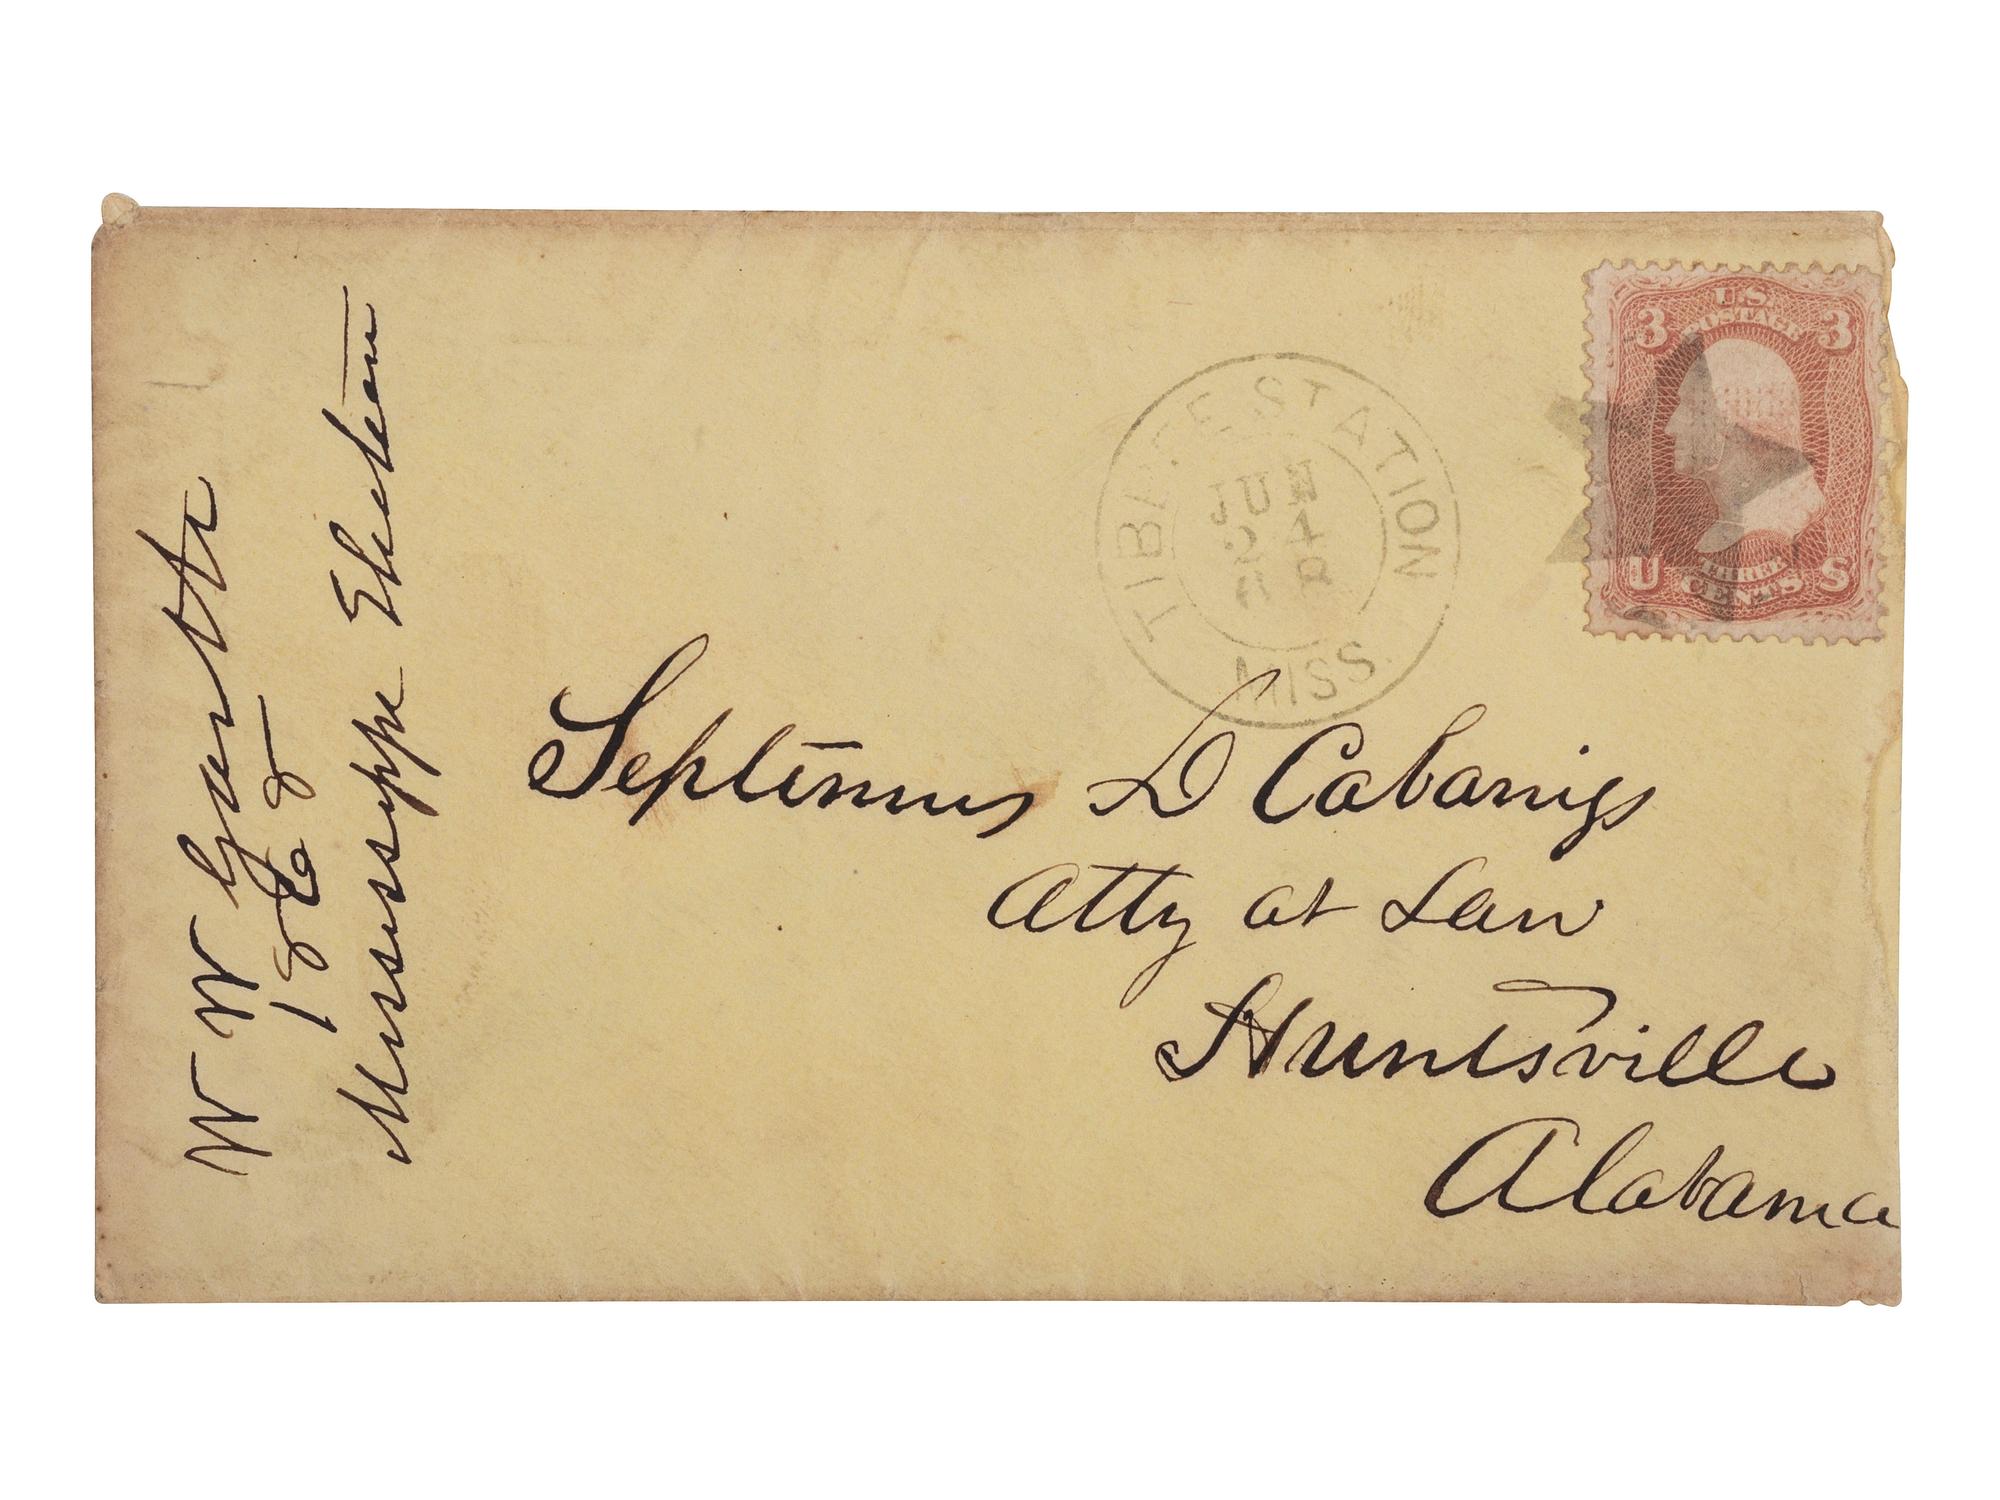 W W Garth
1868
Mississippi Election
TIBBEE STATION
JUN
24
68
MISS.
U.S.
POSTAGE
3 3
U THREE S
CENTS
Septimus D Cabaniss
Atty at Law
Huntsville
Alabama